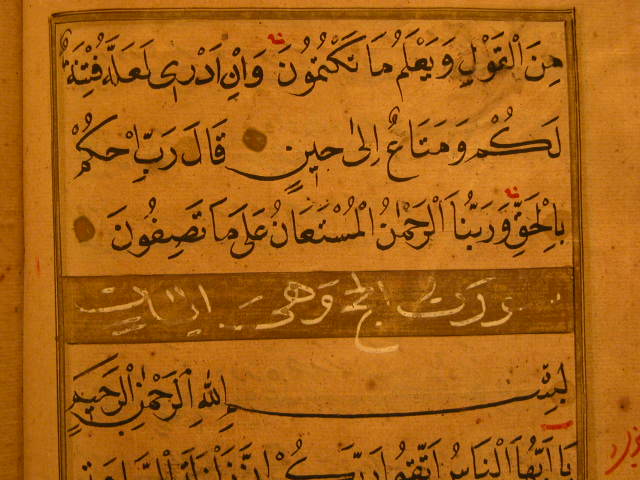 مِنَ الْقَوْلِ وَيَعْلَمُ مَا تَكْتُمُونَ وَاِنْ اَدْرٖى لَعَلَّهُ فِتْنَةٌ
لَكُمْ وَمَتَاعٌ اِلٰى حٖينٍ قَالَ رَبِّ احْكُمْ
بِالْحَقِّ وَرَبُّنَا الرَّحْمٰنُ الْمُسْتَعَانُ عَلٰى مَا تَصِفُونَ
سورت الحج وهى
بِسْمِ اللهِ الرَّحْمٰنِ الرَّحٖيمِ
يَا اَيُّهَا النَّاسُ اتَّقُوا رَبَّكُمْ اِنَّ زَلْزَلَةَ السَّاعَةِ